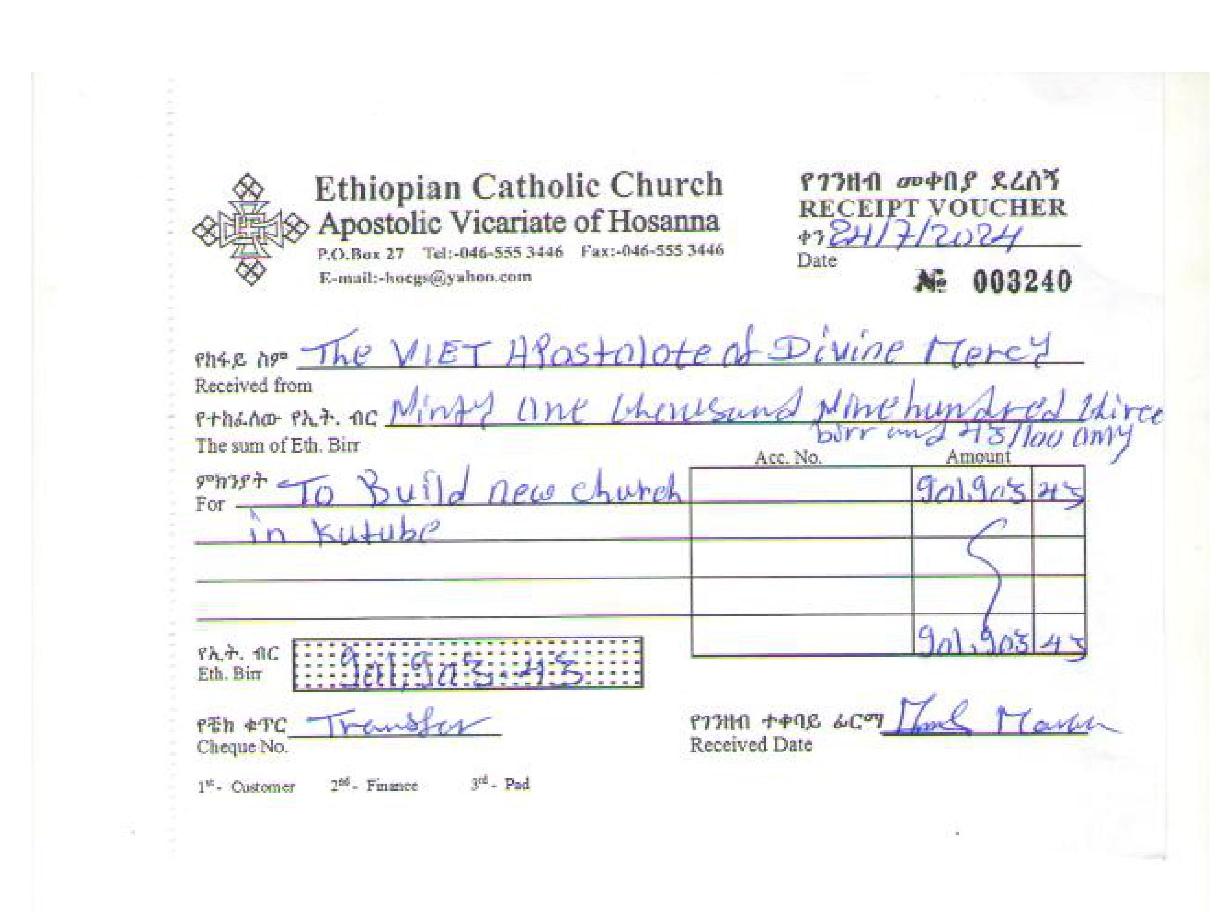 Ethiopian Catholic Church
Apostolic Vicariate of Hosanna
P.O.Box 27 Tel:-046-555 3446 Fax:-046-555 3446
E-mail:-hocgs@yahoo.com
የገንዘብ መቀበያ ደረሰኝ
RECEIPT VOUCHER
ቀን 24/7/2024
Date
№ 003240
የከፋይ ስም The VIET APostolote of Divine Mercy
Received from
የተከፈለው የኢት. ብር one thousand Nine hundred three
birr and 43/100 only
The sum of Eth. Birr
Acc. No. Amount
ምክንያት To Build new church 901,903 43
For
in Kutube
901,903 43
የኢት. ብር 901,903.43
Eth. Birr
የቼክ ቁጥር Transfer
Cheque No.
የገንዘብ ተቀባይ ፊርማ
Received Date
1st- Customer 2nd- Finance 3rd- Pad